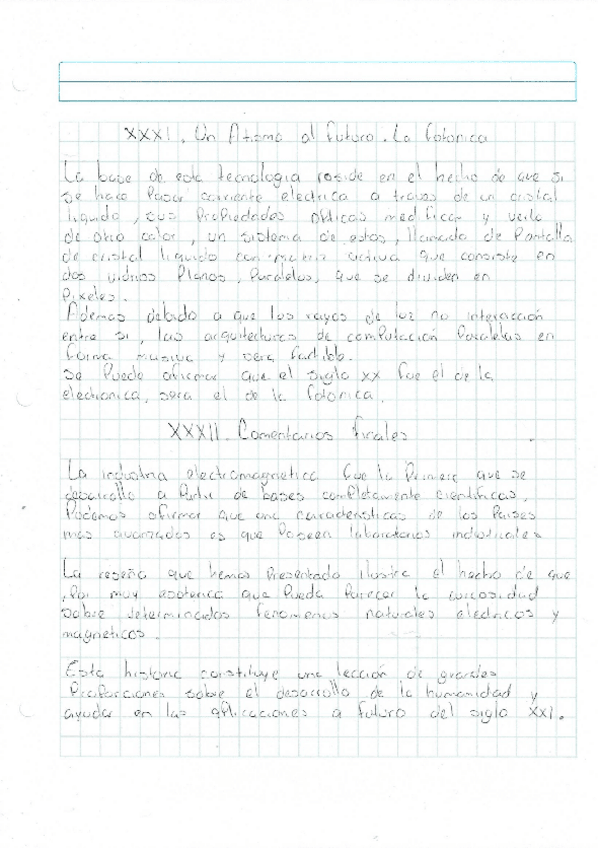 XXXI. Un Atismo al futuro. La fotonica
La base de esta tecnologia reside en el hecho de que si
se hace Pasar corriente electrica a traves de un cristal
liquido, sus Propiedades opticas medificar y verlo
de otro color, un sistema de estos, llamado de Pantalla
de cristal liquido con matriz activa que consiste en
dos vidrios Planos, Paralelos, que se dividen en
Pixeles.
Ademas debido a que los rayos de luz no interacción
entre si, las arquitecturas de computación Paralelas en
forma masiva y sera factible.
se Puede afirmar que el siglo xx fue el de la
electronica, sera el de la fotonica.
XXXII. Comentarios finales
La industria electromagnetica fue la Primera que se
desarrollo a Partir de bases completamente cientificas,
Podemos afirmar que una caracteristicas de los Paises
mas avanzados es que Poseen laboratorios industriales
La reseña que hemos Presentado ilustra el hecho de que
,Por muy esoterica que Pueda Parecer la curiosidad
sobre determinados fenomenos naturales electricos y
magneticos.
Esta historia constituye una lección de grandes
Proporciones sobre el desarrollo de la humanidad y
ayudar en las aplicaciones a futuro del siglo XXI.